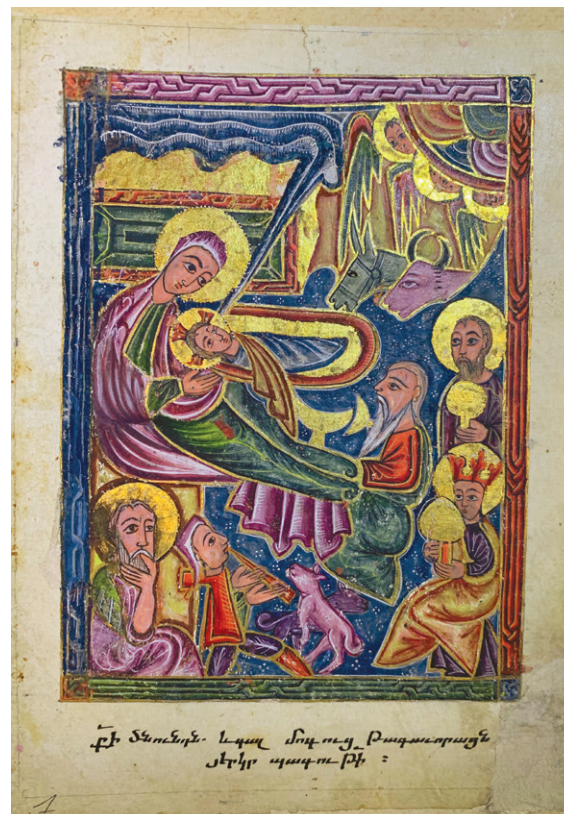 քի ծնունդն. և գալ մոգուց թագաւորացն
յերկր պագութի :
1